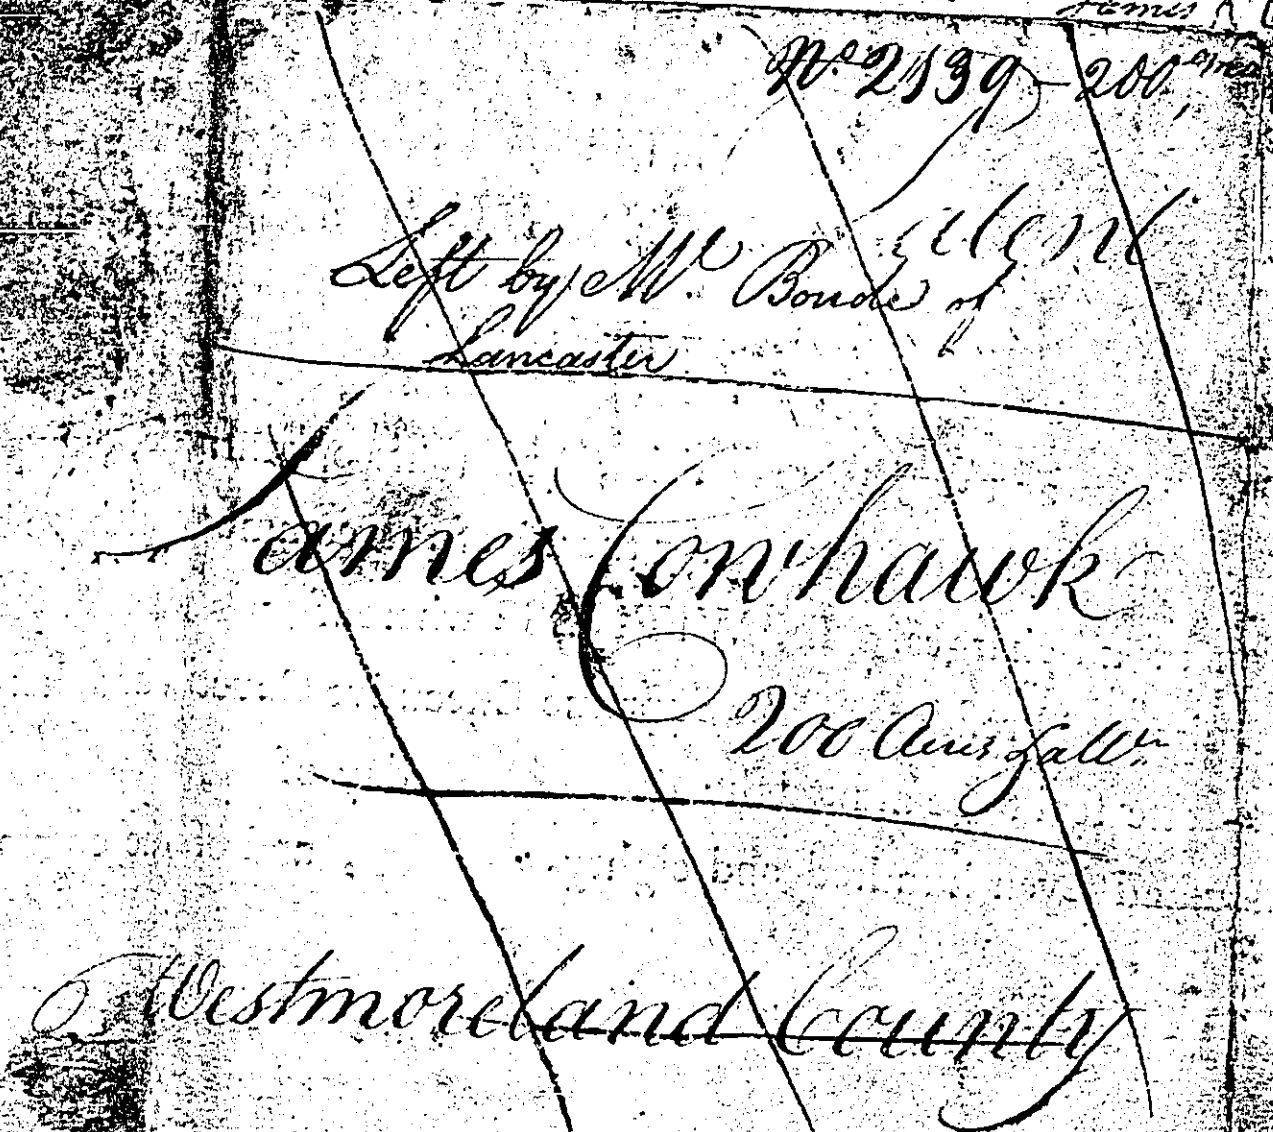 James
No. 2139 — 200 Acres
Left by Mr. Boude of
Lancaster
James Conhawk
200 Acres
Westmoreland County